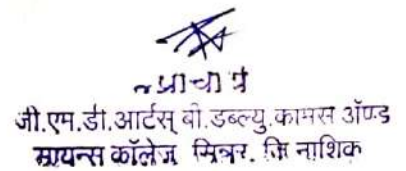 प्राचार्य
जी.एम.डी.आर्टस् बी.डब्ल्यु.कामर्स अॅण्ड
सायन्स कॉलेज सिन्नर, जि नाशिक